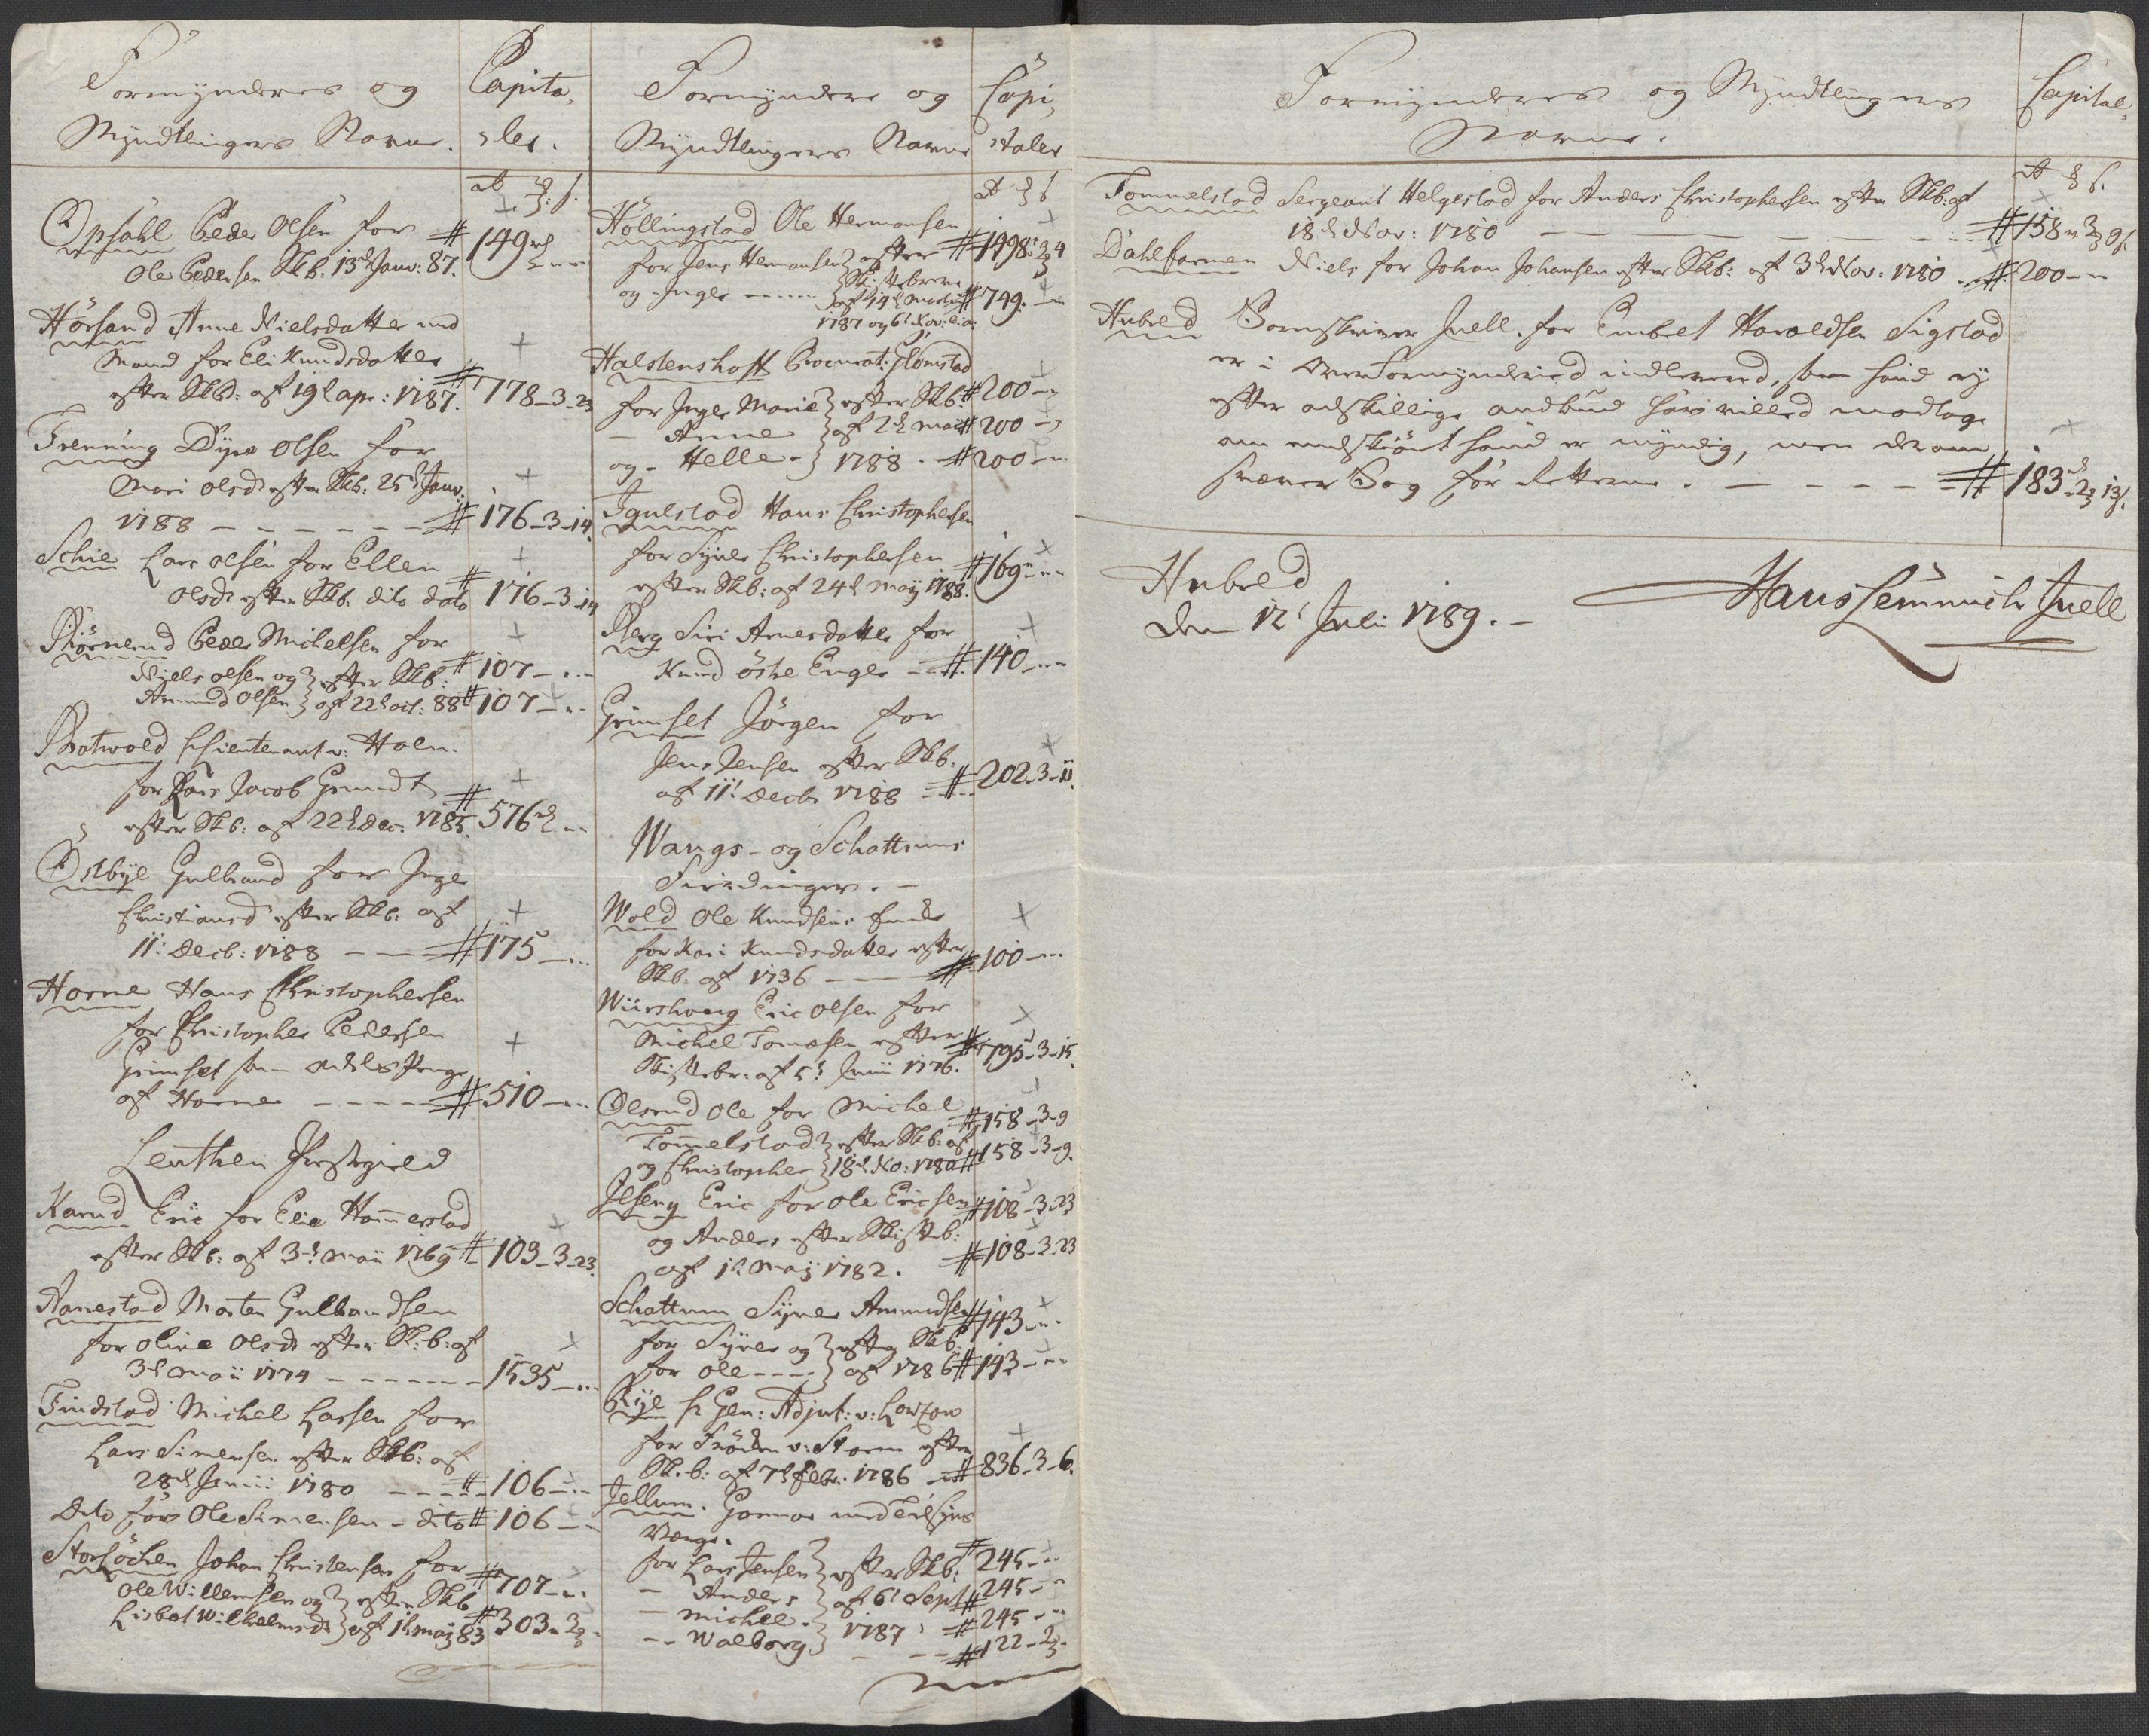 Formynderes og
Myndtlingers Navne.
Capita,
,ler.
Opsahl Peder Olsen for # 149
Ole Pedersen Skb. 13d Janv: 87.
Hörsand Anne Nielsdatter med
Mand for Eli Knudsdatter
efter Skb: af 19d apr: 1787. # 778-3-23
Trenning Dyre Olsen for
Mari Olsdr efter Skb: 25d Janv:
1788 # 176-3-14.
Schie Lars Olsen for Ellen
Olsdr efter Skb: dito dato # 176-3-14
Peder Michelsen for
Niels Olsen og } efter Skb: # 107
Amund Olsen } af 22d oct: 88 # 107
Lieutenant v: Holn.
for Jacob Grundt
efter Skb: af 22d Dec: 1785. # 576
Ostbye Gulbrand for Inge
Christiansd efter Skb: af
11t Decb: 1788 # 175
Horne Hans Christophersen
for Christopher Pedersen
Grimset
af Horne # 510
Leuthen Præstegield
Karud Eric for Elie Hammerstad
efter Skb: af 3d maii 1769 # 103-3-23.
Aanestad Morten Gulbrandsen
for Oline Olsdr efter Sk:b: af
3d Maii 1774 1535
Findstad Michel Larsen for
Lars Simensen efter Skb: af
28d Junii 1780 # 106
Dito for Ole Simensen - dito # 106
Storlöchen Johan Christensen for
Ole Willemsen og } efter Skb # 707
Lisbet Wilhelmsdr } af 1t maij 83 # 303-2
Formyndere og
Myndtlingers Navne
Capi,
,taler
Höllingstad Ole Hermansen
for Jens Hermansen } efter # 1498-3-4
og Inger } Skiftebreve
af 14d Martii # 749.
1787 og 6t Nov:
Halstenshoff Procurat: Flomstad
for Inger Marie } efter Skb: # 200
- Anne } af 2d maii # 200
og - Helle - } 1788 - # 200
Igulstad Hans Christophersen
for Syver Christophersen
efter Skb: af 24d Maij 1788. # 169
Berg Siri Arnesdatter for
Knud östre Enger # 140
Grimset Jörgen for
Jens Jensen efter Skb:
af 11t Decbr 1788 # 202-3-11.
Wangs- og Schattums
Fierdinger. -
Wold Ole Knudsens Enke
for Kari Knudsdatter efter
Skb: af 1736 # 100
Eric Olsen for
Michel Tomesen efter
Skiftebr: af 5t Junii 1776. # 795-3-15.
Olsrud Ole for Michel # 158-3-9
Tommelstad } efter Skb: af
og Christopher } 18d No: 1780 # 158-3-9.
Ilseng Eric for Ole Ericsen # 108-3-23
og Anders efter Skifteb:
af 1t Maij 1782. # 108-3-23
Schattum Syver Amundsen # 143
for Syver og } efter Skb:
for Ole } af 1786 # 143
Rye Hr Gen: Adjut: v: Lowzow
for Fröken v: Storm efter
Sk.b: af 7d Febr: 1786 # 836-3-6.
Jellum. Gunnor med
Værge.
for Lars Jensen } efter Skb: # 245
- Anders } af 6t Sept # 245
- Michel. } 1787 # 245
- Walborg } # 122-2
Formynderes og Myndtlingers
Navne.
Capital,
Tommelstad Sergeant Helgestad for Anders Christophersen efter Skb: af
18d Nov: 1780 # 158
Dahlfarmen Niels for Johan Johansen efter Skb: af 3d Nov: 1780 # 200
Hubred Sorenskriver Juell. for Embret Haraldsen Sigstad
er i Overformynderied indlevered, som hand ey
efter adskillige andbud har villed modtage
om endskiönt hand er myndig, men derom
svæver Sag for Retterne. # 183-2 13s.
Hubred
den 12t Juli 1789. -
Hans Lemmich Juell